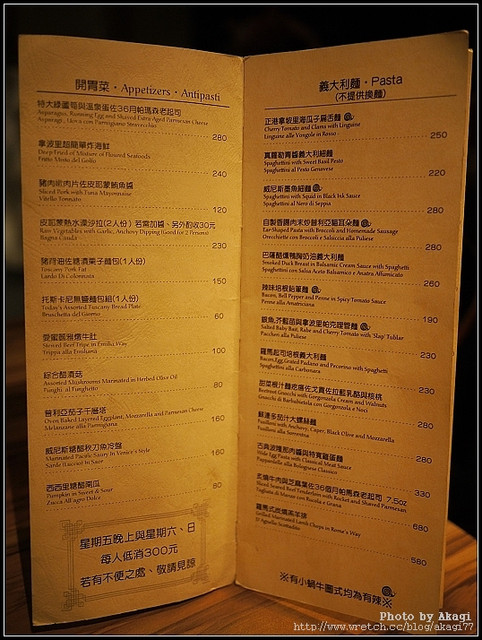 開胃菜・Appetizers・Antipasti
特大綠蘆筍與溫泉蛋佐36月帕瑪森老起司
Asparagus, Running Egg and Shaved Extra Aged Parmesan Cheese
280
拿波里超簡單炸海鮮
Deep Fried of Mixture of Floured Seafoods
Fritto Misto del Golfo
240
豬肉術肉片佐皮耶蒙鮪魚醬
Sliced Pork with Tuna Mayonnaise
Vitello Tonnato
120
皮耶蒙熱水澡沙拉(2人份) 若需加醬、另外酌收30元
Raw Vegetables with Garlic, Anchovy Dipping (Good for 2 Persons)
Bagna Cauda
230
Tuscany Pork Fat
Lardo Di Colonnata
150
托斯卡尼無鹽麵包組(1人份)
Today's Assorted Tuscany Bread
Bruschetta del Giorno
60
愛蜜莉雅燉牛肚
Stewed Beef Tripe in Emilia Way
Trippa alla Emiliana
100
綜合醋漬菇
Assorted Mushrooms Marinated in Herbed Olive Oil
Funghi al Funghetto
80
普利亞茄子千層塔
Oven Baked Layered Eggplant, Mozzarella and Parmesan Cheese
Melanzane alla Parmigiana
160
威尼斯糖醋秋刀魚冷盤
Marinated Pacific Saury In Venice's Style
Sarde (Lucioni) in Saor
160
西西里糖醋南瓜
Pumpkin in Sweet & Sour
Zucca All'agro Dolce
80
星期五晚上與星期六、日
每人低消300元
若有不便之處、敬請見諒
義大利麵・Pasta
(不提供換麵)
正港拿坡里海瓜子扁舌麵
Cherry Tomato and Clams with Linguine
Linguine alle Vongole in Rosso
250
真羅勒青醬義大利細麵
Spaghettini with Sweet Basil Pesto
Spaghettini al Pesto Genovese
220
威尼斯墨魚細麵
Spaghettini with Squid in Black Ink Sauce
Spaghettini al Nero di Seppia
280
自製香腸肉末炒普利亞貓耳朵麵
Ear-Shaped Pasta with Broccoli and Homemade Sausage
Orecchiette con Broccoli e Salsiccia alla Puliese
280
巴薩醋燻鴨胸奶油義大利麵
Smoked Duck Breast in Balsamic Cream Sauce with Spaghetti
Spaghettini con Salsa Aceto Balsamico e Anatra Affumicato
260
辣味培根蛤筆麵
Bacon, Bell Pepper and Penne in Spicy Tomato Sauce
Penne alla Amatriciana
190
Salted Baby Bait, Rabe and Cherry Tomato with 'Slap' Tubular
Paccheri alla Puliese
230
羅馬起司培根義大利麵
Bacon, Egg, Grated Padano and Pecorino with Spaghetti
Spaghettini alla Carbonara
230
甜菜根汁麵疙瘩佐戈貢佐拉藍乳酪與核桃
Beetroot Gnocchi with Gorgonzola Cream and Walnuts
Gnocchi di Barbabietola con Gorgonzola e Noci
280
蘇連多茄汁大螺絲麵
Fusilloni with Anchovy, Caper, Black Olive and Mozzarella
Fusilloni alla Sorrentina
280
古典波隆那肉醬與特寬雞蛋麵
Wide Egg Pasta with Classical Meat Sauce
Pappardella alla Bolognese Classico
330
炙燒牛肉與芝麻葉佐36個月帕瑪森老起司 7.5oz
Sliced Seared Beef Tenderloin with Rocket and Shaved Parmesan
Tagliata di Manzo con Rucola e Grana
680
羅馬式炭燒羔羊排
Grilled Marinated Lamb Chops in Rome's Way
D'Agnello Scottadito
580
※有小蝸牛圖式均為有辣※
Photo by Akagi
http://www.wretch.cc/blog/akagi77